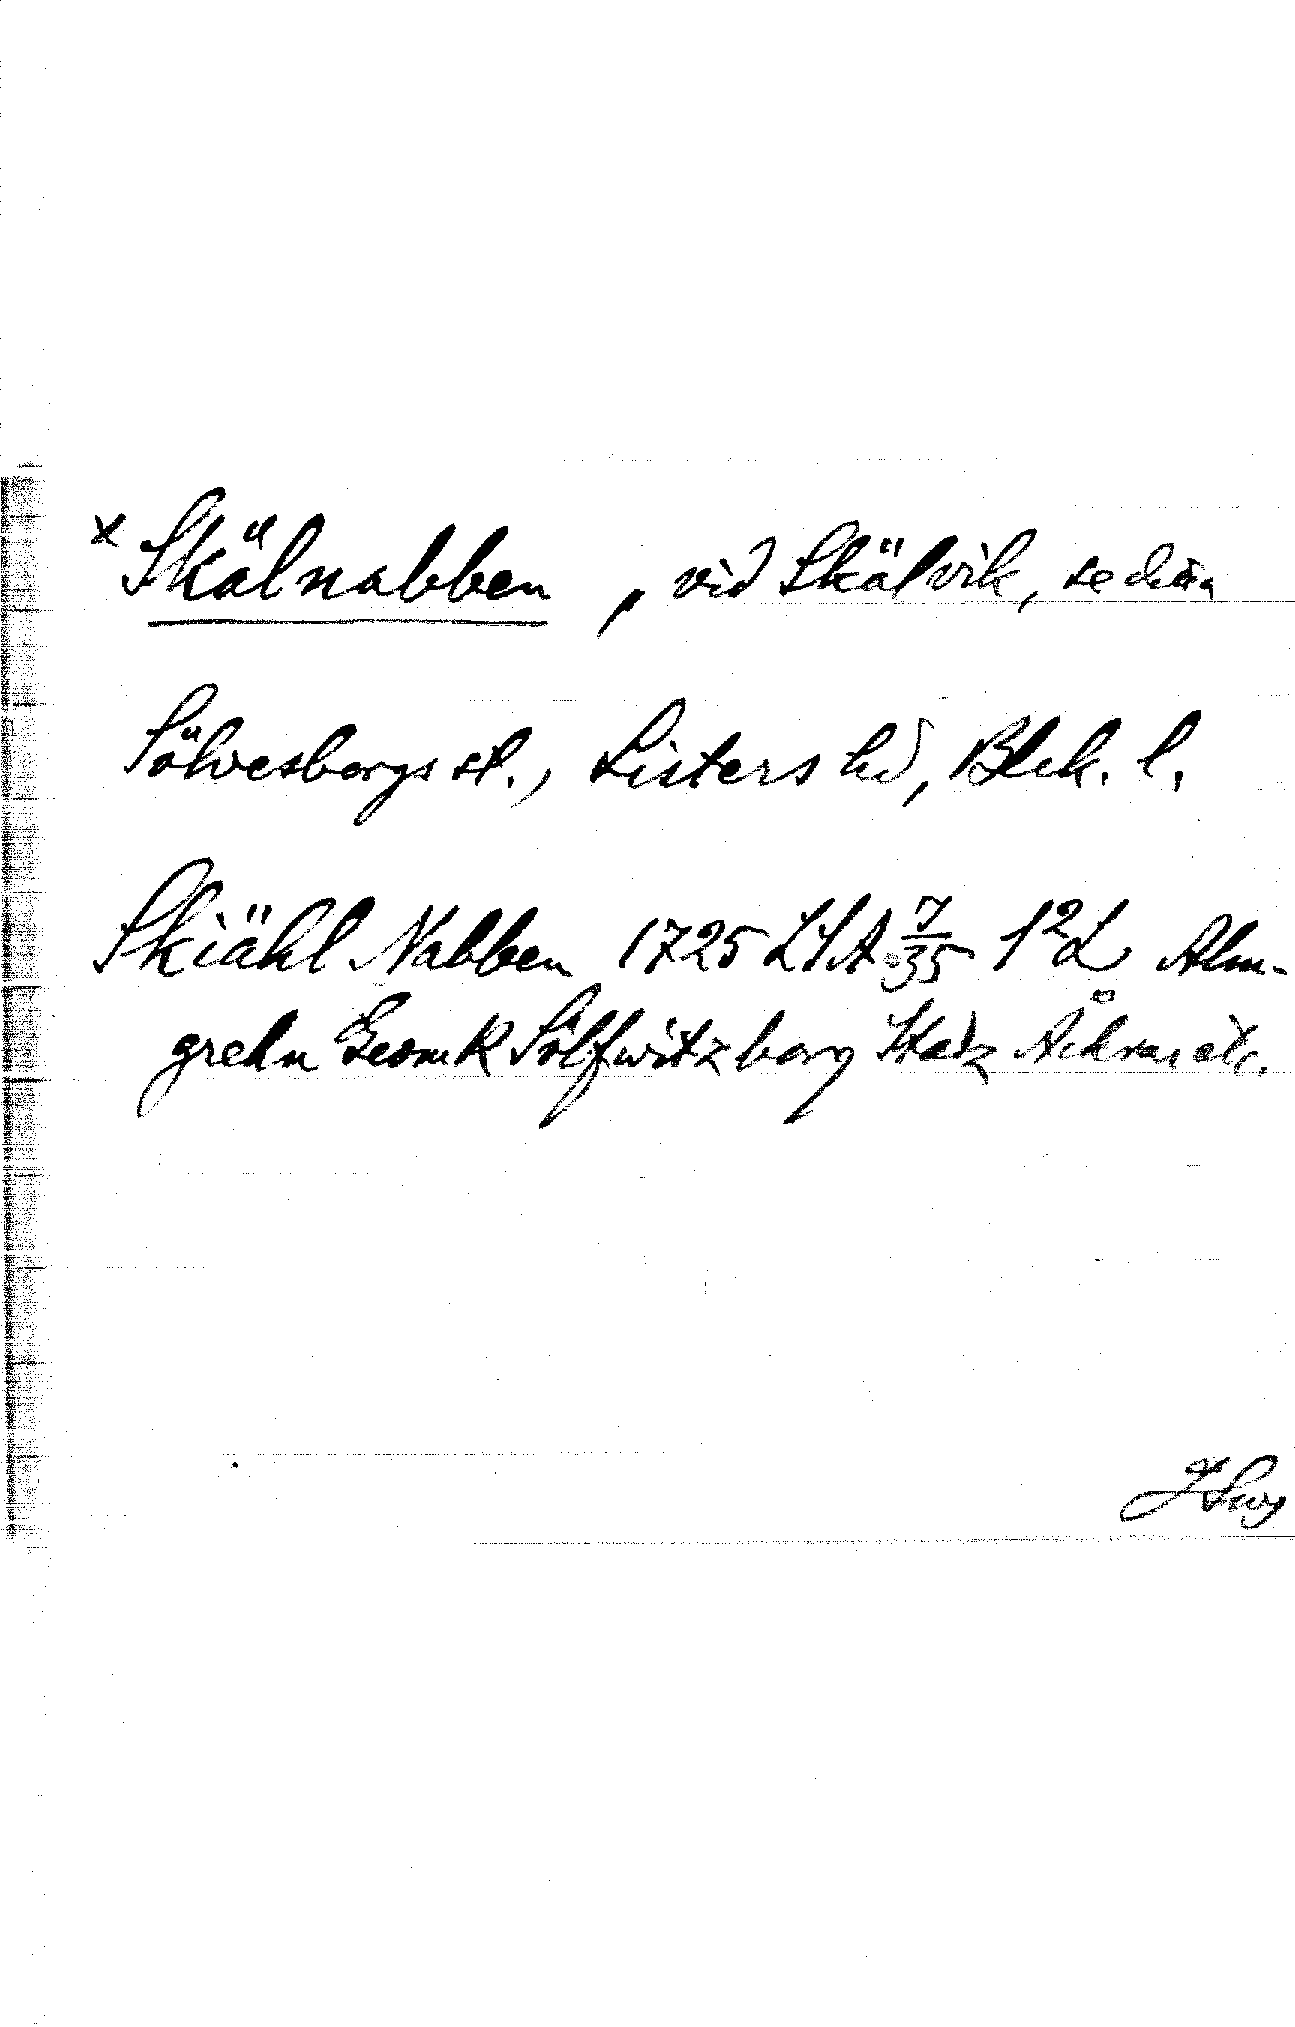 x Skälnabben, vid Skälvik, se d:a
Sölvesborgs st., Listers hd, Blek. l.
Skiähl Nabben 1725 LSA 7/35 1²L Alm-
grehn Geom K Sölfwitzborg Stadz Åkrar etc.